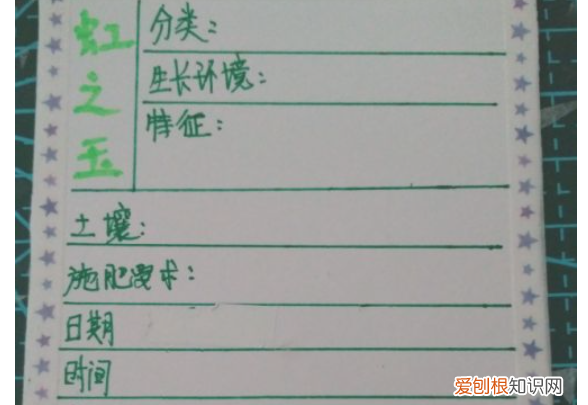 虹之玉
分类：
生长环境：
特征：
土壤：
施肥要求：
日期
时间
爱刨根知识网